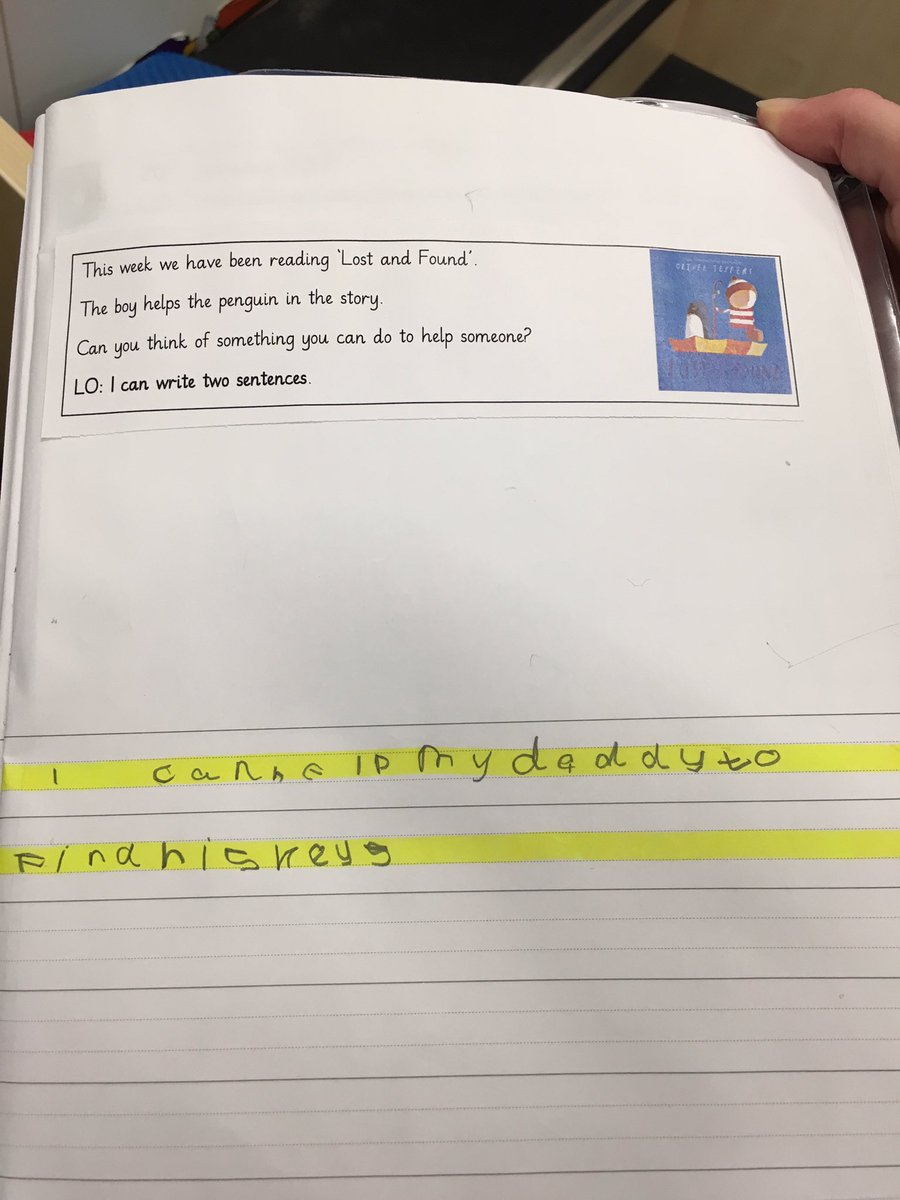 This week we have been reading 'Lost and Found'.
The boy helps the penguin in the story.
Can you think of something you can do to help someone?
LO: I can write two sentences.
OLIVER JEFFERS
LOST AND FOUND
I can help my daddy to
Find his keys